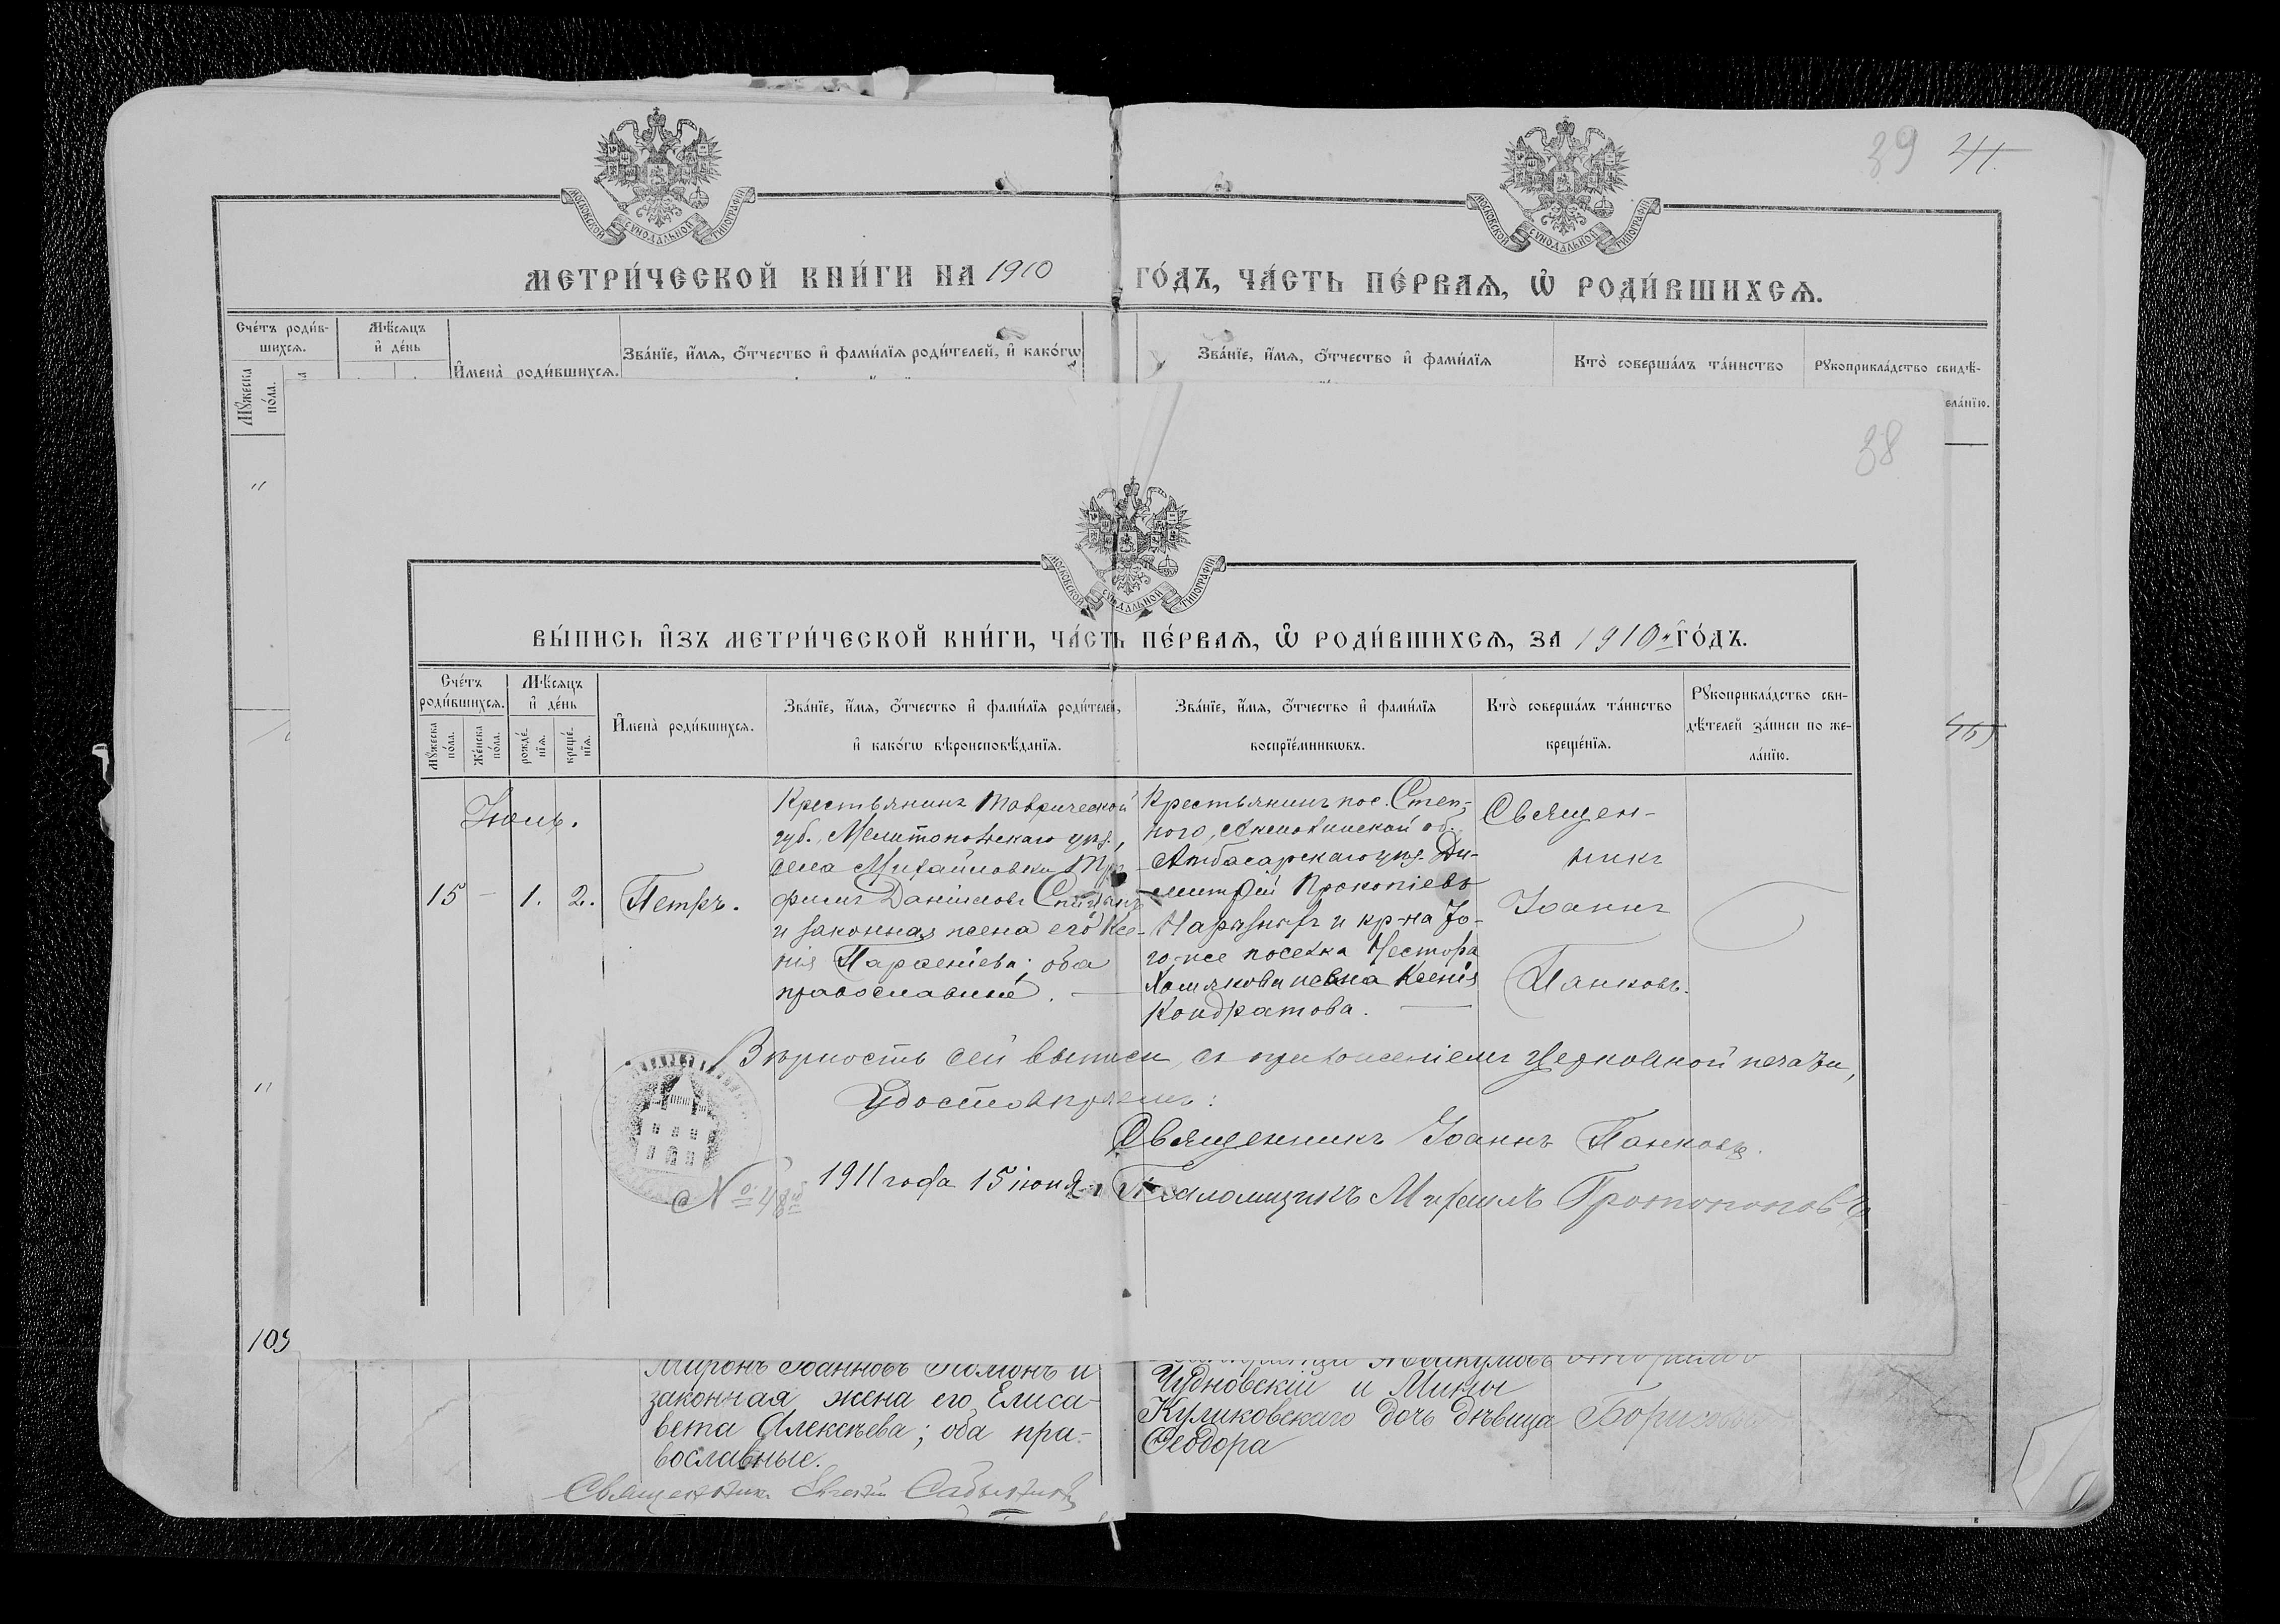 39 41.
МОСКОВСКОЙ СѴНОДАЛЬНОЙ ТИПОГРАФІИ
МОСКОВСКОЙ СѴНОДАЛЬНОЙ ТИПОГРАФІИ
МЕТРИ́ЧЕСКОЙ КНИ́ГИ НА 1910
ГО́ДЪ, ЧА́СТЬ ПЕ́РВАѦ, Ѡ҆ РОДИ́ВШИХСѦ.
Сче́тъ роди́в-
шихсѧ.
Мѣ́сѧцъ
и҆ де́нь
И҆мена̀ роди́вшихсѧ.
Зва́нїе, и҆́мѧ, ѻ҆́тчество и҆ фами́лїѧ роди́телей, и҆ како́гѡ
Зва́нїе, и҆́мѧ, ѻ҆́тчество и҆ фами́лїѧ
Кто̀ соверша́лъ та́инство
Рꙋкоприкла́дство свидѣ́-
Мꙋ́жеска
по́ла.
ела́нїю.
38
"
МОСКОВСКОЙ СѴНОДАЛЬНОЙ ТИПОГРАФІИ
ВЫ́ПИСЬ И҆ЗЪ МЕТРИ́ЧЕСКОЙ КНИ́ГИ, ЧА́СТЬ ПЕ́РВАѦ, Ѡ҆ РОДИ́ВШИХСѦ, ЗА 1910й ГО́ДЪ.
Сче́тъ
роди́вшихсѧ.
Мꙋ́жеска
по́ла.
Же́нска
по́ла.
Мѣ́сѧцъ
и҆ де́нь
рожде́-
нїѧ.
креще́-
нїѧ.
И҆мена̀ роди́вшихсѧ.
Зва́нїе, и҆́мѧ, ѻ҆́тчество и҆ фами́лїѧ роди́телей,
и҆ како́гѡ вѣроисповѣ́данїѧ.
Зва́нїе, и҆́мѧ, ѻ҆́тчество и҆ фами́лїѧ
воспрїе́мникѡвъ.
Кто̀ соверша́лъ та́инство
креще́нїѧ.
Рꙋкоприкла́дство сви-
дѣ́телей за́писи по же-
ла́нїю.
15 - 1. 2. Петръ.
Крестьянинъ Таврической
губ., Мелитопольскаго уѣз.,
села Михайловки
филъ Даніиловъ
и законная жена его Ксе-
нія Парѳеніева; оба
православные.
Крестьянинъ пос. Степ-
ного, Акмолинской об.
Атбасарскаго уѣз. Ди-
митрій Прокопіевъ
и кр-на То-
го-же поселка Нестора
жена Ксенія
Кондратова.
Священ-
никъ
Іоаннъ
Панковъ.
Вѣрность сей выписи, съ приложеніемъ церковной печати,
удостовѣряемъ:
Священникъ Іоаннъ Панковъ.
1911 года 15 іюня
Псаломщикъ Михаилъ Протопоповъ
"
Миронъ Іоанновъ и
законная жена его Елиса-
вета Алексѣева; оба пра-
вославные.
Чудновскій и Мины
Куликовскаго дочь дѣвица
Ѳеодора
Священникъ